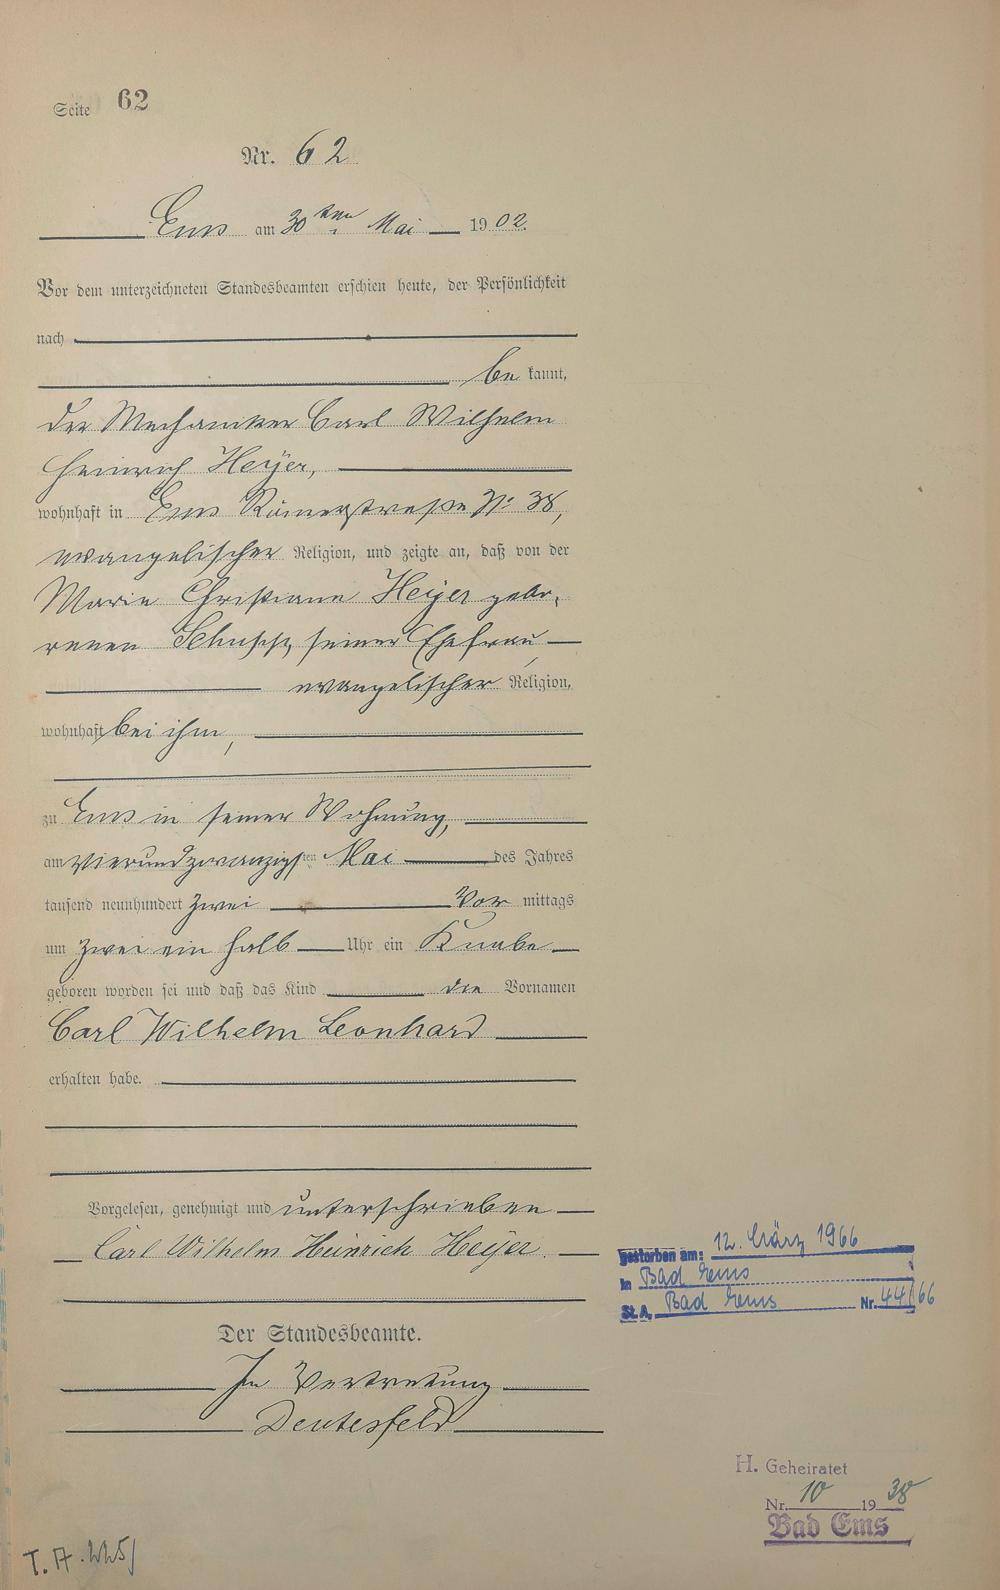 Seite 62
Nr. 62
Ems am 30ten Mai 1902.
Vor dem unterzeichneten Standesbeamten erschien heute, der Persönlichkeit
nach
be kannt,
der Mechaniker Carl Wilhelm
Heinrich Heÿer,
wohnhaft in Ems Römerstraße No 38,
evangelischer Religion, und zeigte an, daß von der
Marie Christiane Heÿer gebo-
renen Schupp, seiner Ehefrau,
evangelischer Religion,
wohnhaft bei ihm,
zu Ems in seiner Wohnung,
am vierundzwanzigsten Mai des Jahres
tausend neunhundert zwei Vor mittags
um zwei ein halb Uhr ein Knabe
geboren worden sei und daß das Kind die Vornamen
Carl Wilhelm Leonhard
erhalten habe.
Vorgelesen, genehmigt und unterschrieben
Carl Wilhelm Heinrich Heÿer.
gestorben am: 12. März 1966
in Bad Ems
St.A. Bad Ems Nr. 44/66
Der Standesbeamte.
In Vertretung
H. Geheiratet
Nr. 10 1938
Bad Ems